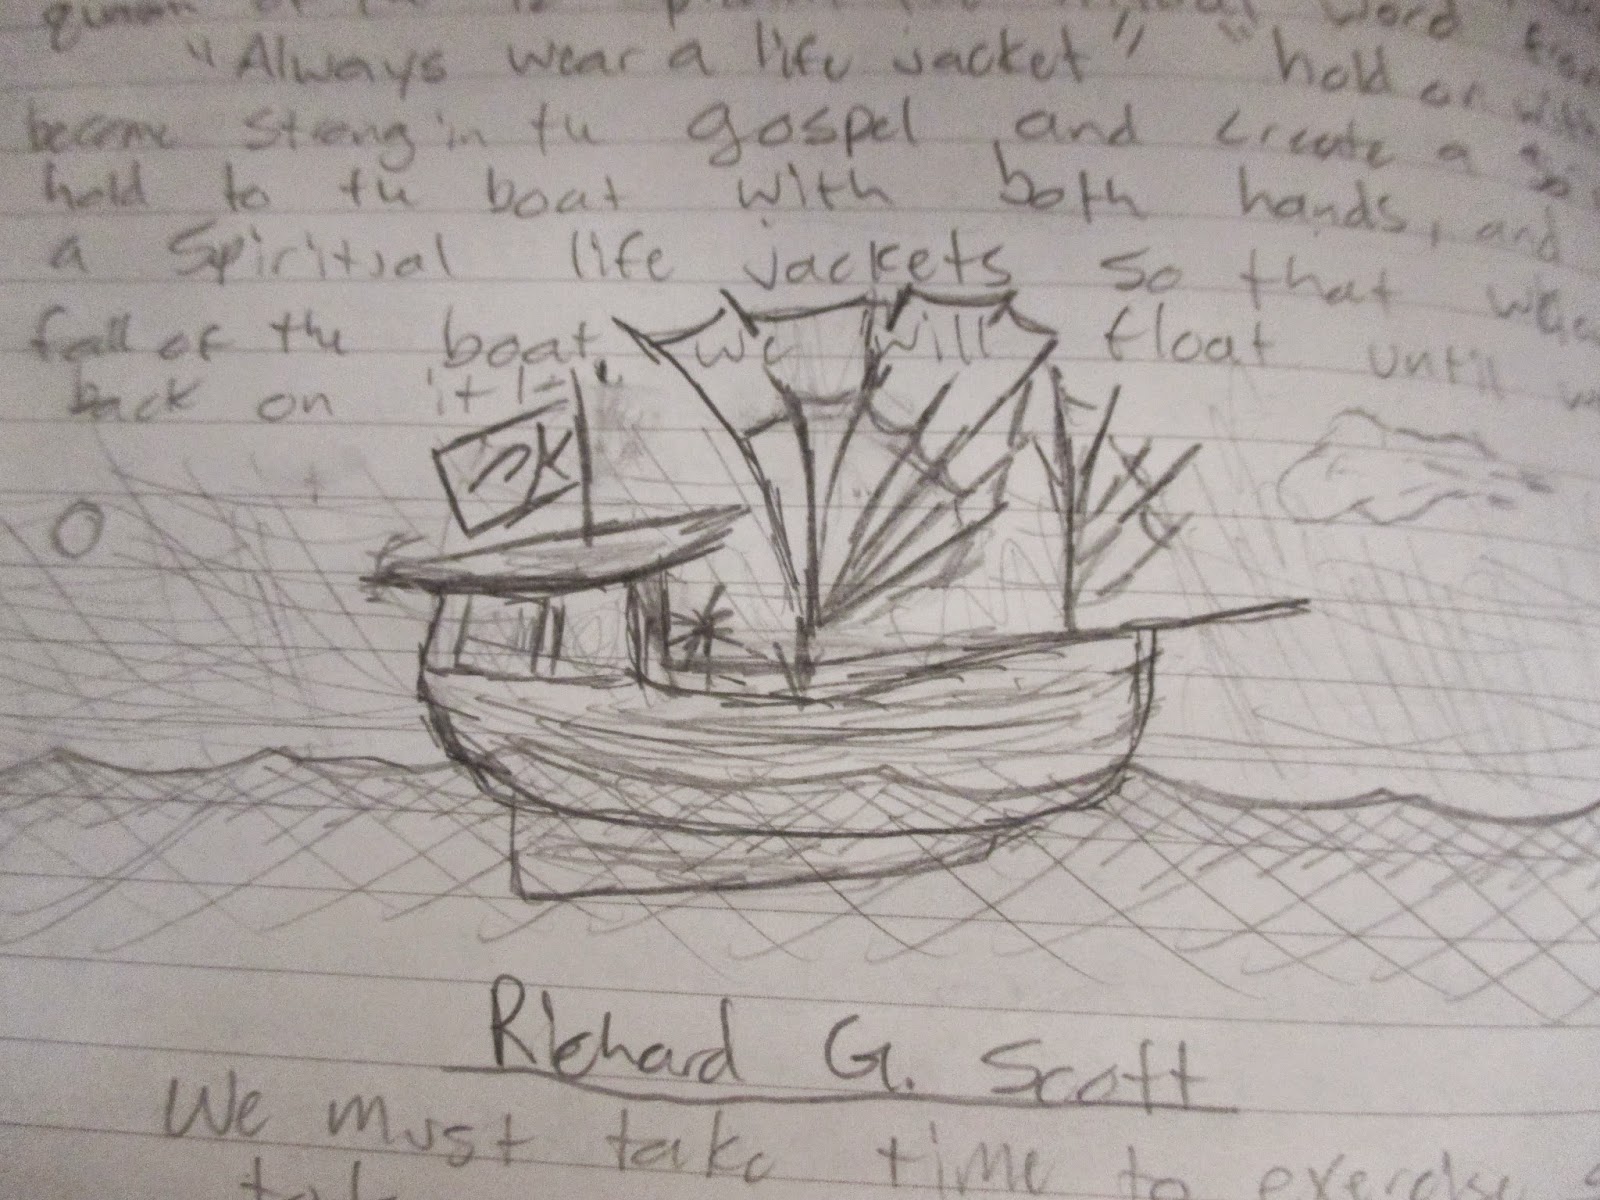 word
"Always wear a life jacket" "hold on
become strong in tu gospel and create a
hold to tu boat with both hands, and
a Spiritual life jackets so that
fall of the boat, we will float until
back on it!
Richard G. Scott
We must take time to exercise